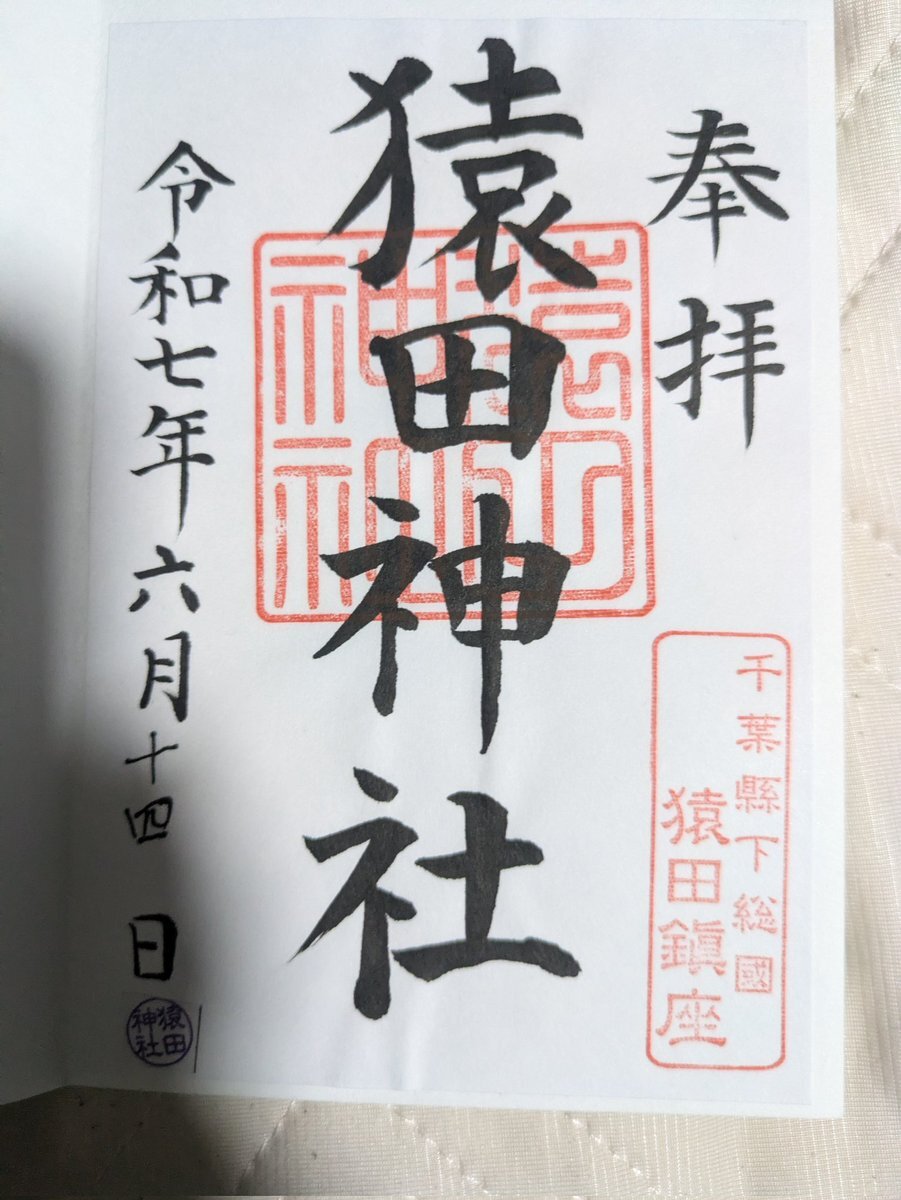 奉拝
千葉縣下総國
猿田鎮座
猿田神社
令和七年六月十四日
猿田
神社